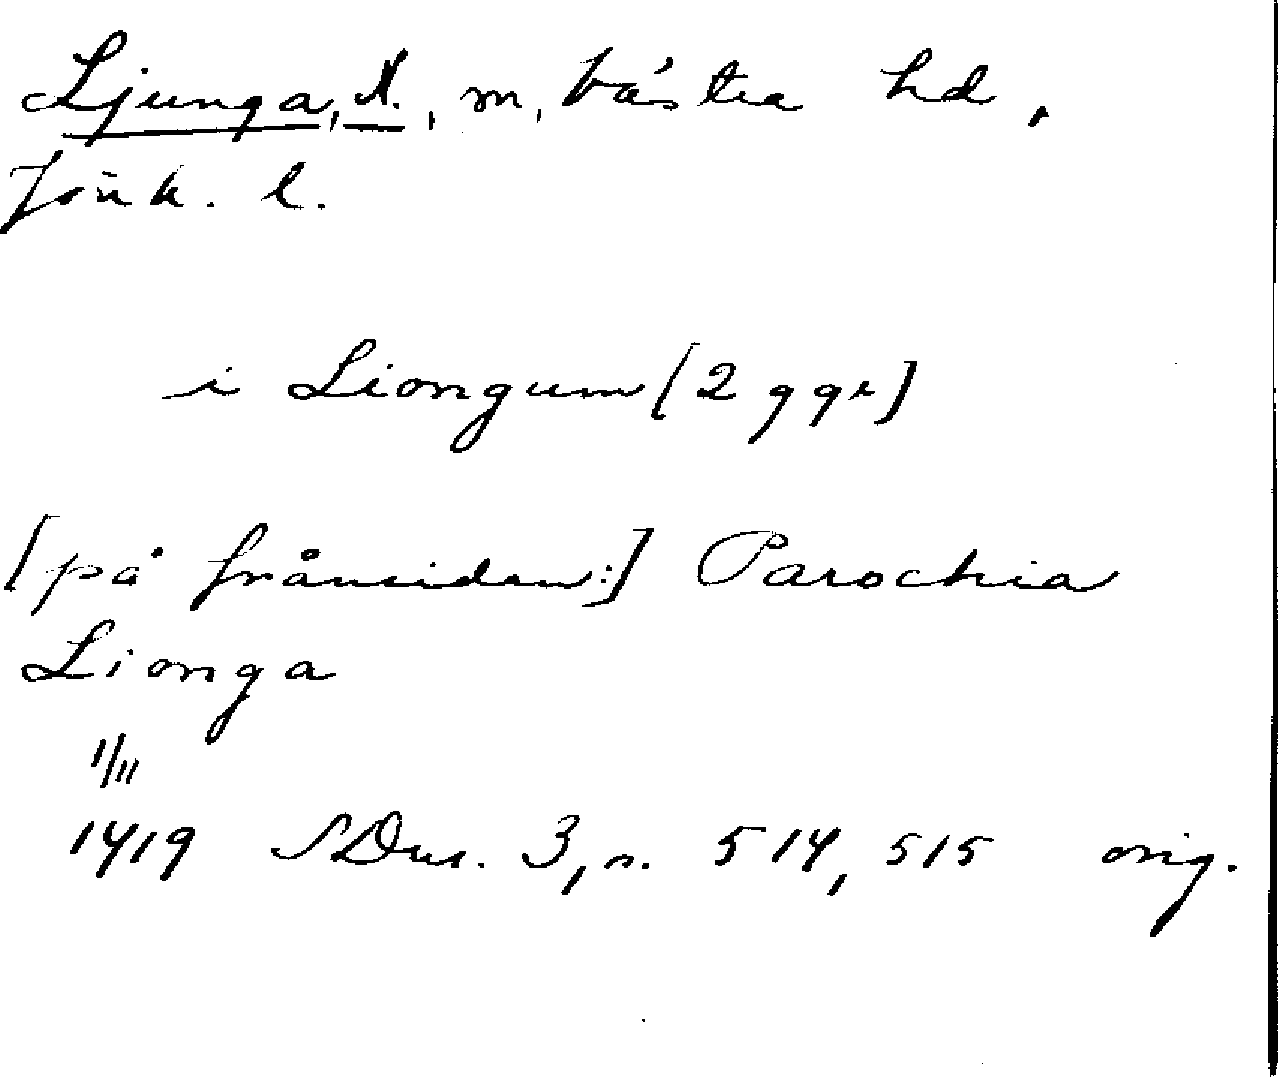 Ljunga, N., m, Västra hd,
Jönk. l.
i Liongum [2 ggr]
[på frånsidan:] Parochia
Lionga
1/11
1419 SDns. 3, s. 514, 515 orig.